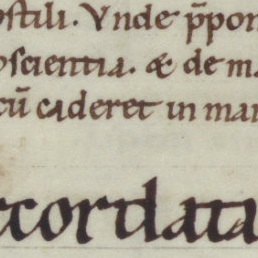 ostili. Vnde p̄pon
oscientia. & de m
cū caderet in man
ccordata